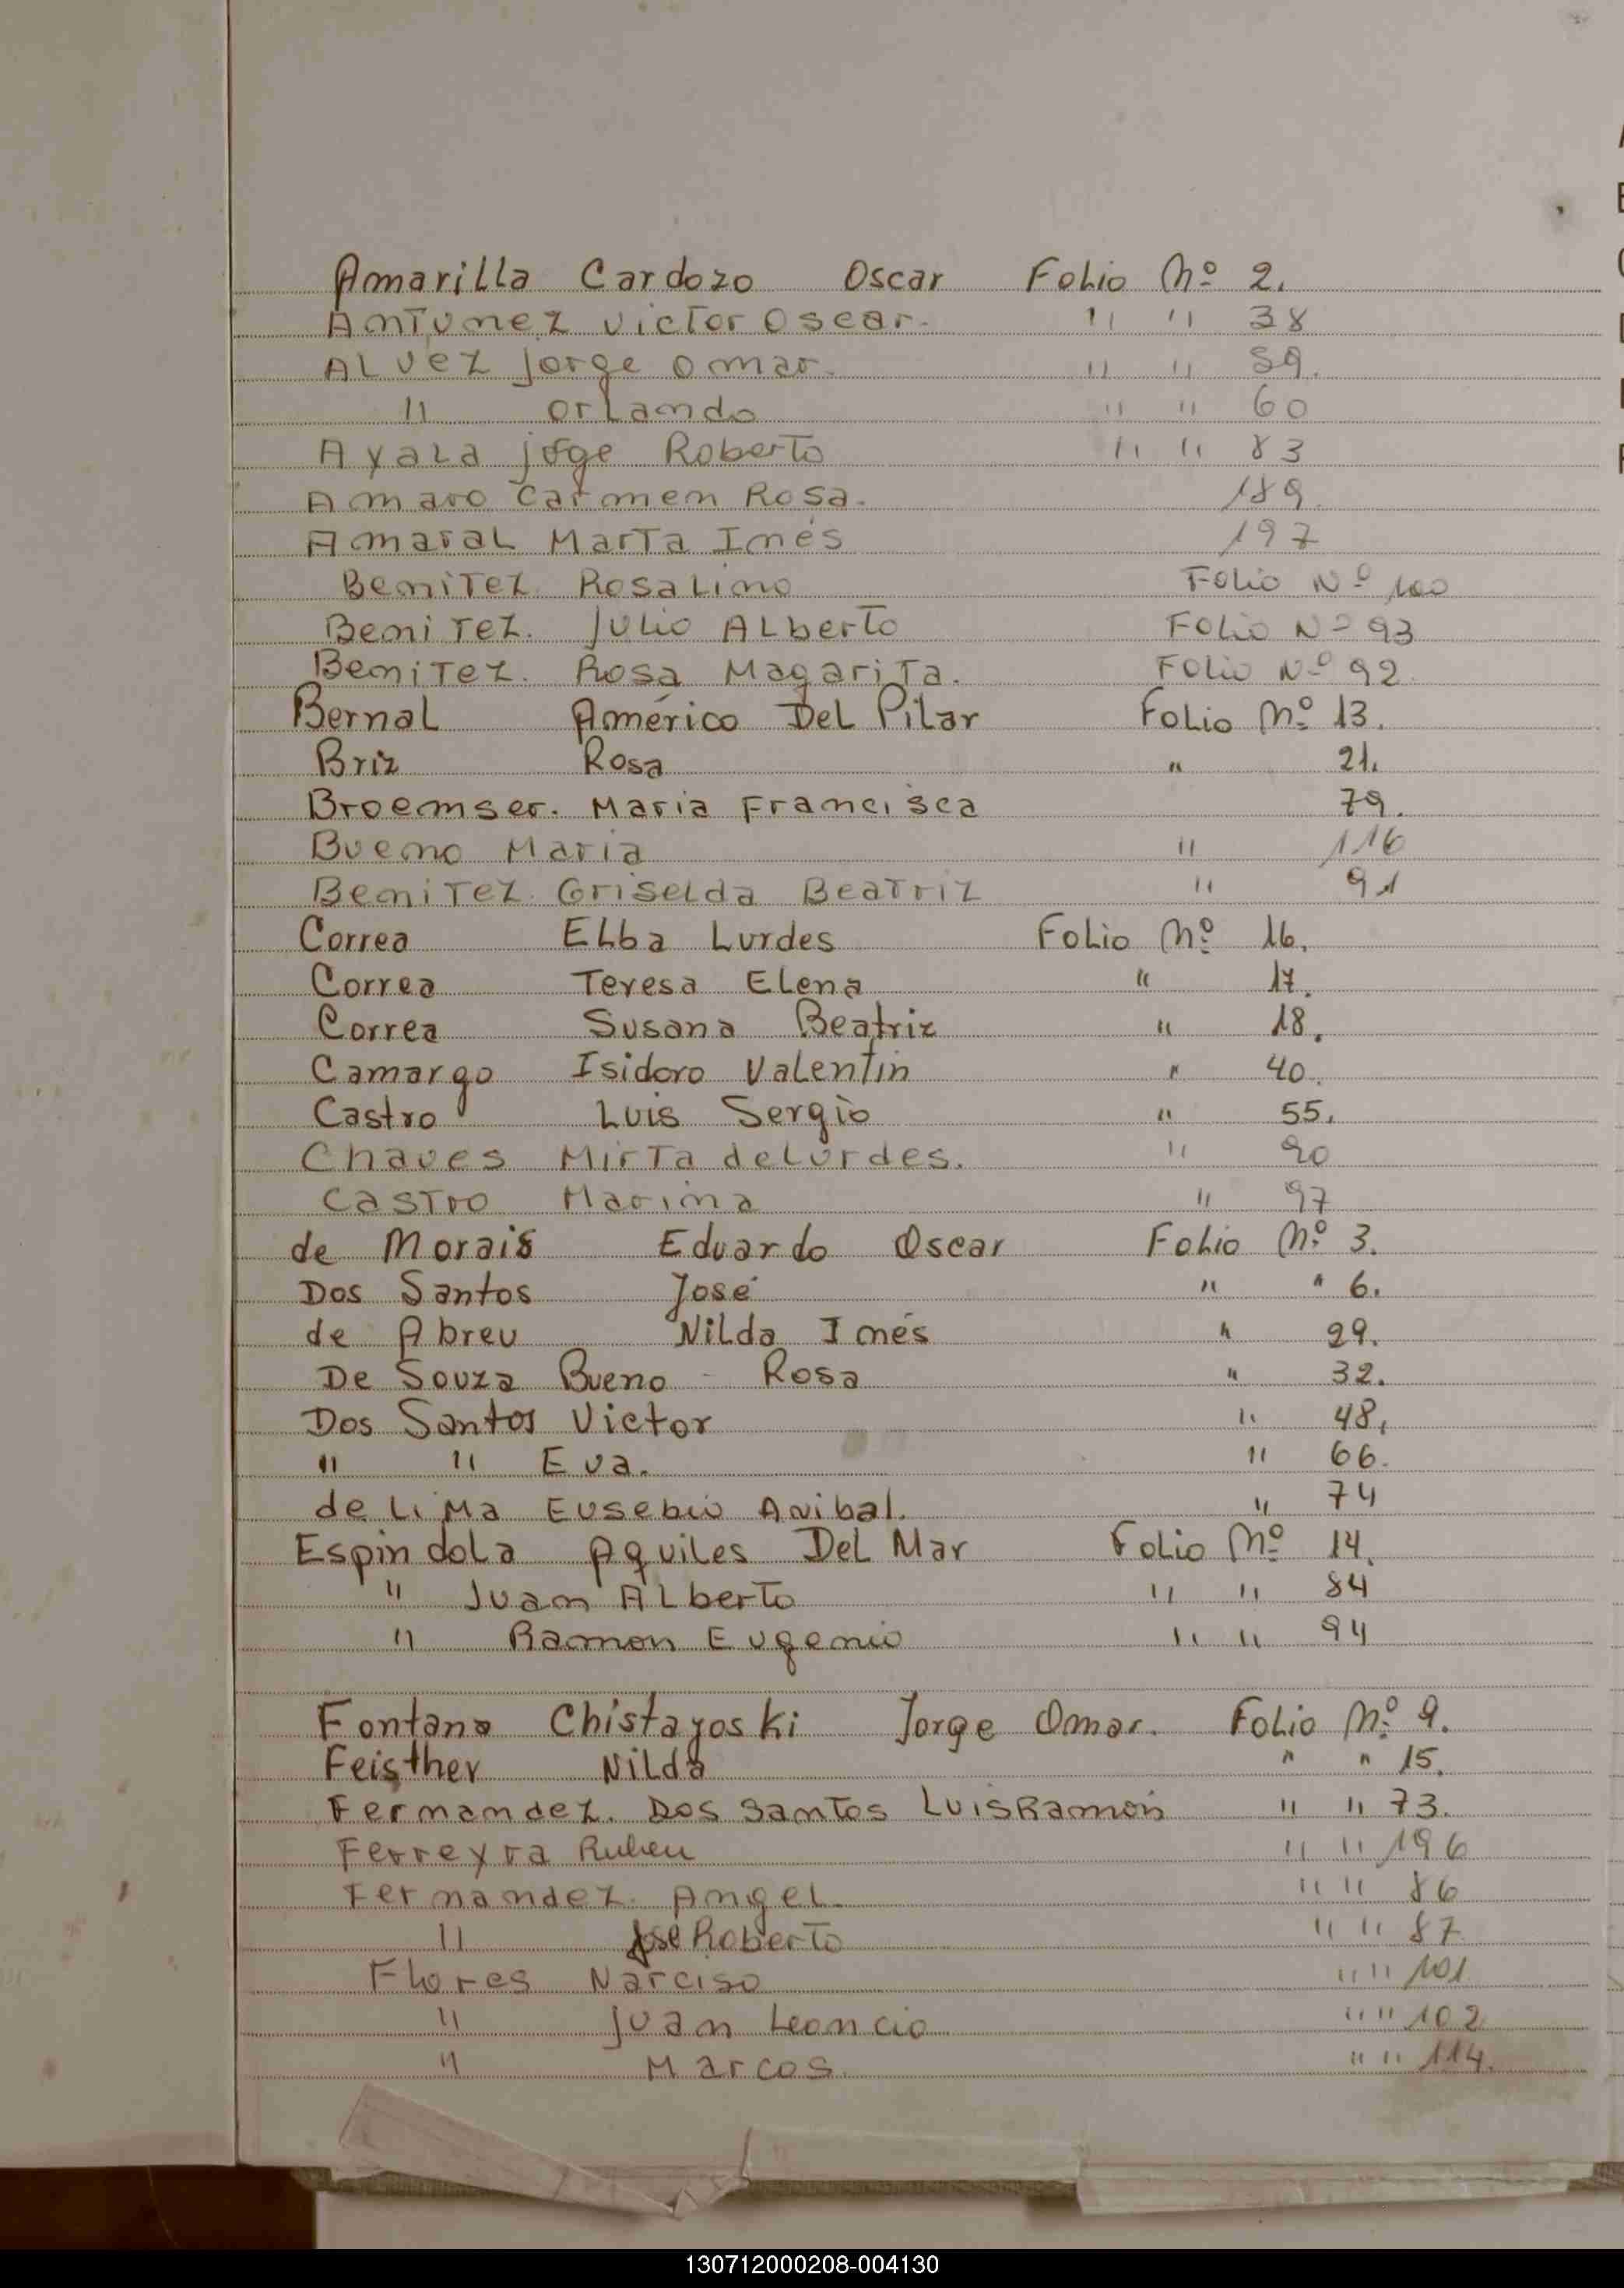 Amarilla Cardozo Oscar Folio Nº 2.
Antunez Victor Oscar. " " 38
Alvez Jorge Omar. " " 59.
" Orlando " " 60
Ayala jorge Roberto " " 83
Amaro Carmen Rosa. 189.
Amaral Marta Inés 197
Benitez Rosalino Folio Nº 100
Benitez. Julio Alberto Folio Nº 93
Benitez. Rosa Magarita. Folio Nº 92.
Bernal Américo Del Pilar Folio Nº 13.
Briz Rosa " 21.
Broemser. Maria Francisca 79.
Bueno Maria " 116
Benitez. Griselda Beatriz " 91
Correa Elba Lurdes Folio Nº 16.
Correa Teresa Elena " 17.
Correa Susana Beatriz " 18.
Camargo Isidoro Valentin " 40.
Castro Luis Sergio " 55.
Chaves Mirta de Lurdes. " 90
Castro Marina " 97
de Morais Eduardo Oscar Folio Nº 3.
Dos Santos José " " 6.
de Abreu Nilda Inés " 29.
De Souza Bueno - Rosa " 32.
Dos Santos Victor " 48.
" " Eva. " 66.
de Lima Eusebio Anibal. " 74
Espindola Aquiles Del Mar Folio Nº 14.
" Juan Alberto " " 84
" Ramon Eugenio " " 94
Fontana Chistayoski Jorge Omar. Folio Nº 9.
Feisther Nilda " " 15.
Fernandez. Dos Santos Luis Ramón " " 73.
Ferreyra Ruben " " 196
Fernandez. Angel. " " 86
" José Roberto " " 87
Flores Narciso " " 101
" Juan Leoncio " " 102
" Marcos. " " 114.
130712000208-004130